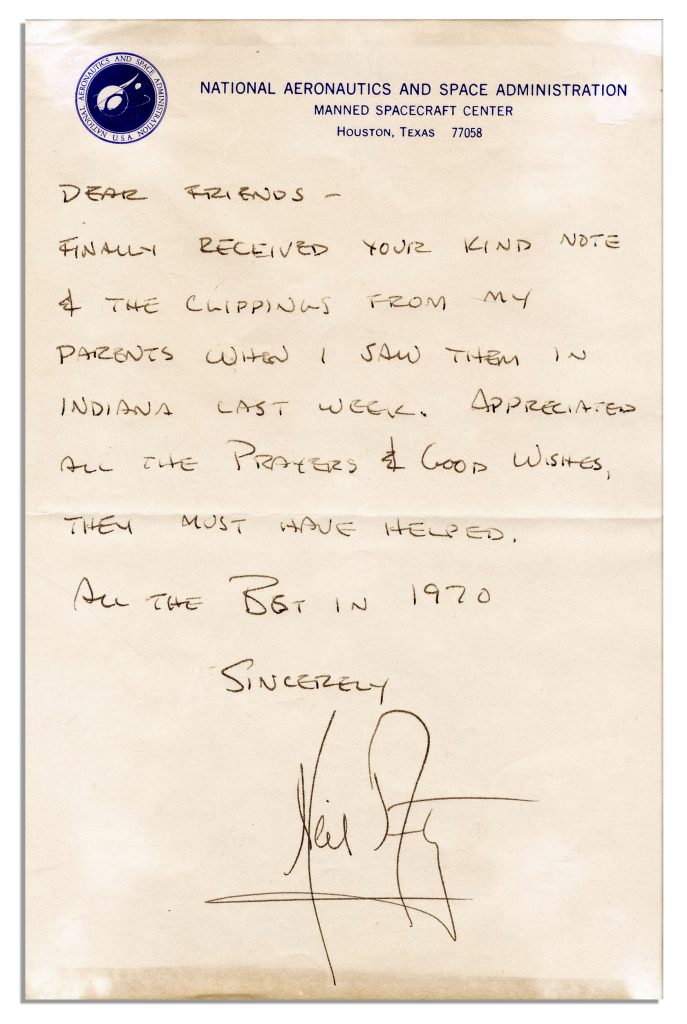 NATIONAL AERONAUTICS AND SPACE ADMINISTRATION
U.S.A
NATIONAL AERONAUTICS AND SPACE ADMINISTRATION
MANNED SPACECRAFT CENTER
HOUSTON, TEXAS 77058
DEAR FRIENDS –
FINALLY RECEIVED YOUR KIND NOTE
& THE CLIPPINGS FROM MY
PARENTS WHEN I SAW THEM IN
INDIANA LAST WEEK. APPRECIATED
ALL THE PRAYERS & GOOD WISHES,
THEY MUST HAVE HELPED.
ALL THE BEST IN 1970
SINCERELY
Neil